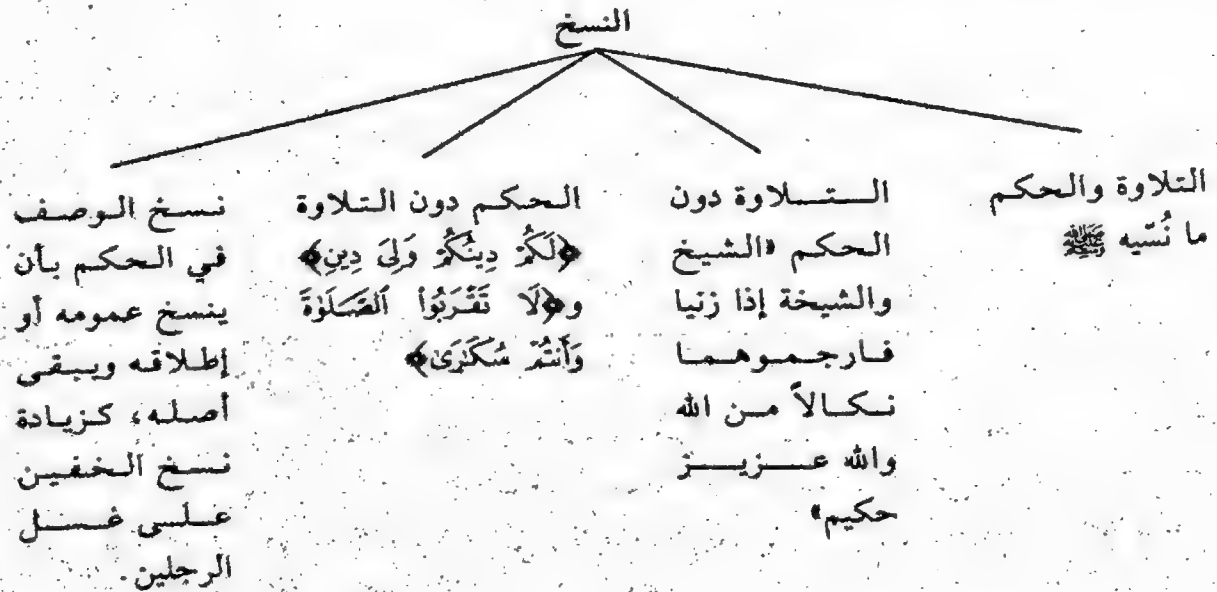 النسخ
التلاوة والحكم
ما نُسّيه ﷺ
التلاوة دون
الحكم «الشيخ
والشيخة إذا زنيا
فارجموهما
نكالاً من الله
والله عزيز
حكيم»
الحكم دون التلاوة
﴿لَكُمْ دِينُكُمْ وَلِيَ دِينِ﴾
و﴿لَا تَقْرَبُوا۟ ٱلصَّلَوٰةَ
وَأَنتُمْ سُكَـٰرَىٰ﴾
نسخ الوصف
في الحكم بأن
ينسخ عمومه أو
إطلاقه ويبقى
أصله، كزيادة
نسخ الخفين
على غسل
الرجلين.